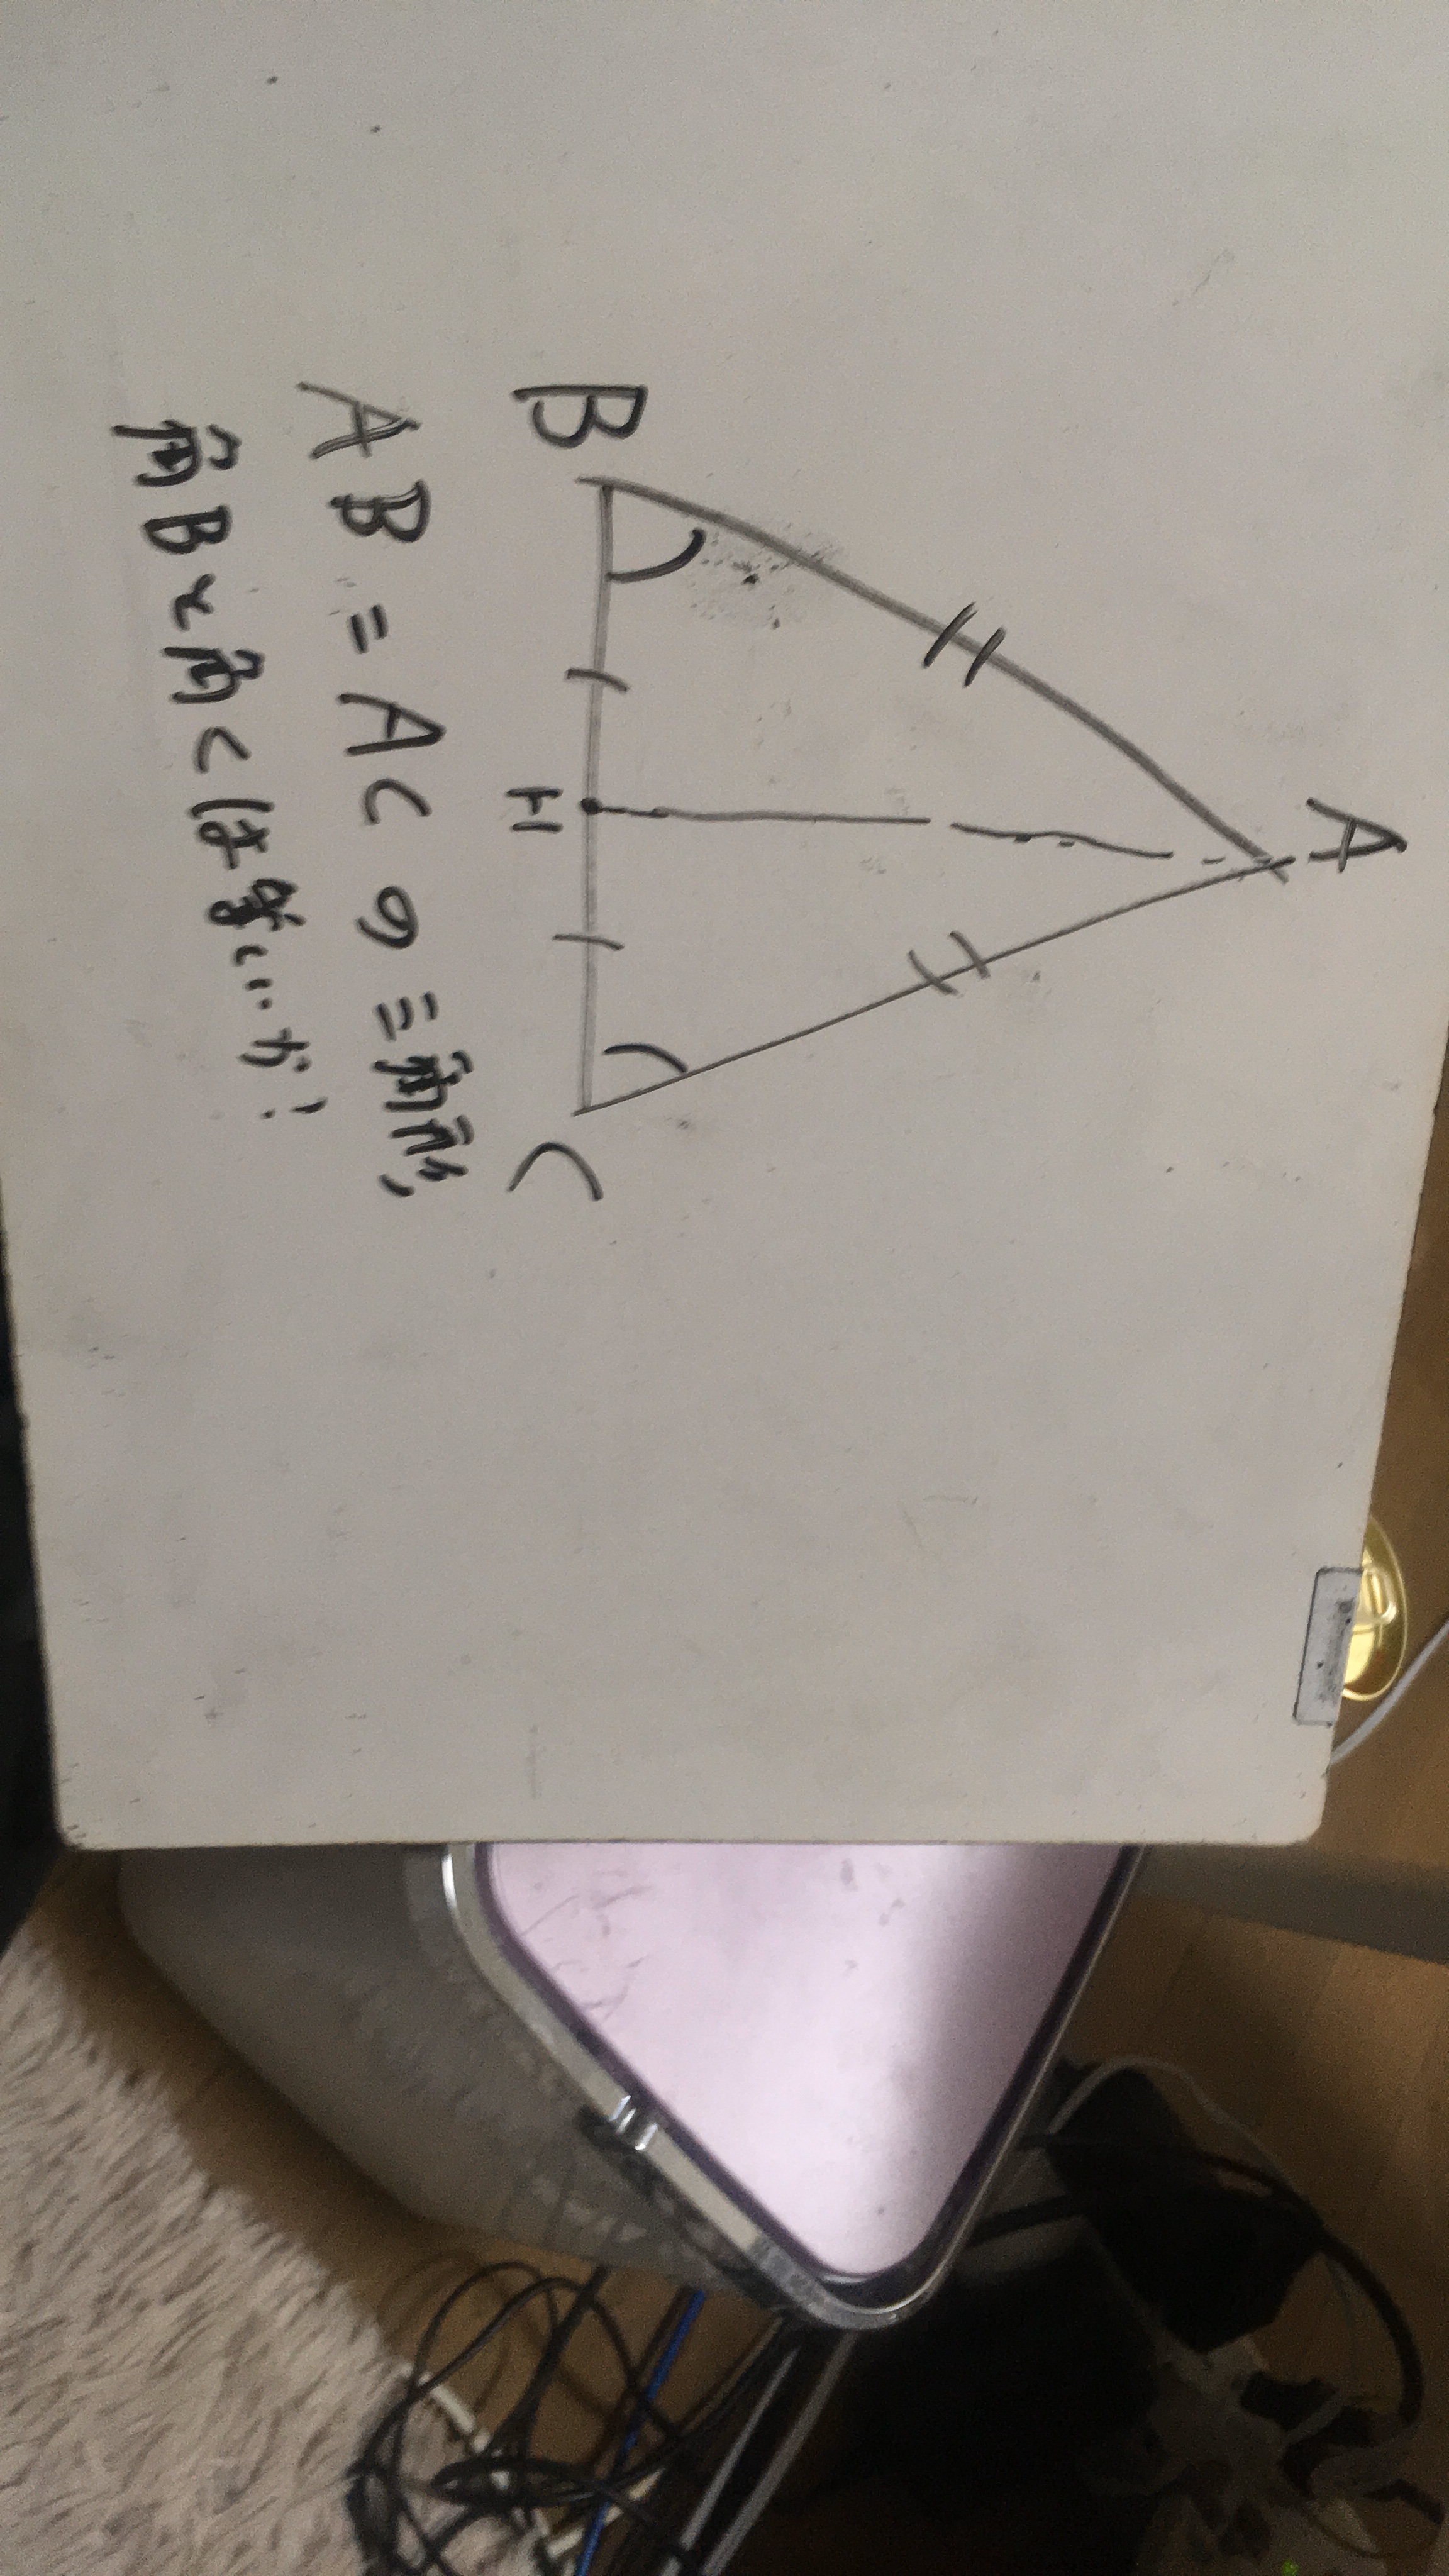 A
B
H
C
AB = ACの三角形,
角Bと角Cは等しいか!